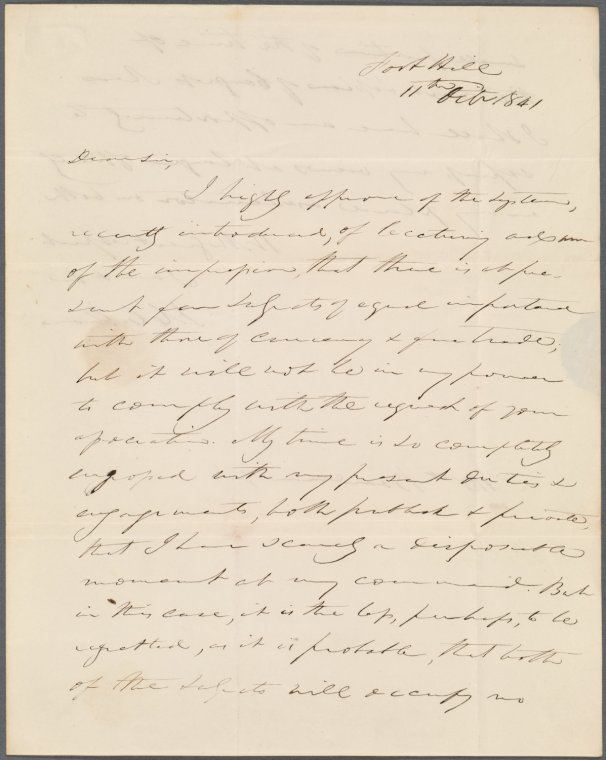 Fort Hill
11th Octr 1841
Dear Sir,
I highly approve of the system,
recently introduced, of lecturing and am
of the impression, that there is at pre-
sent few subjects of equal importance
with those of currency & free trade;
but it will not be in my power
to comply with the request of your
association. My time is so completely
engrossed with my present duties &
engagements, both publick & private,
that I have scarcely a disposable
moment at my command. But
in this case, it is the less, perhaps, to be
regretted, as it is probable, that both
of the subjects will occupy no